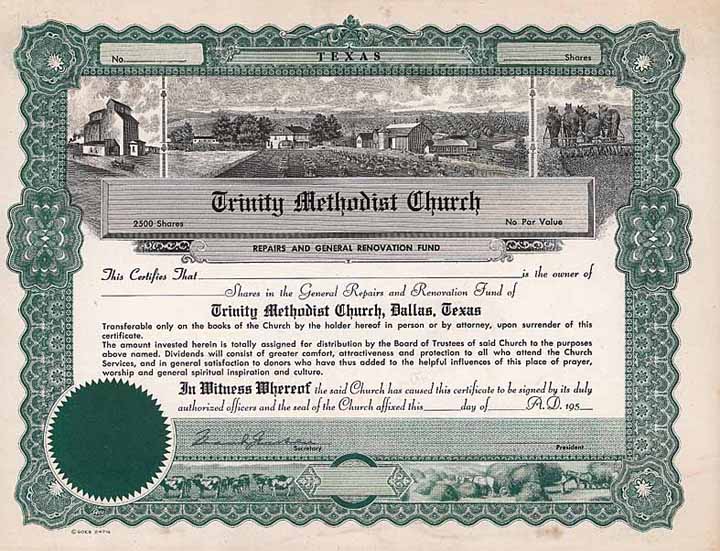 No.
TEXAS
Shares
Trinity Methodist Church
2500 Shares
No Par Value
REPAIRS AND GENERAL RENOVATION FUND
This Certifies That is the owner of
Shares in the General Repairs and Renovation Fund of
Trinity Methodist Church, Dallas, Texas
Transferable only on the books of the Church by the holder hereof in person or by attorney, upon surrender of this
certificate.
The amount invested herein is totally assigned for distribution by the Board of Trustees of said Church to the purposes
above named. Dividends will consist of greater comfort, attractiveness and protection to all who attend the Church
Services, and in general satisfaction to donors who have thus added to the helpful influences of this place of prayer,
worship and general spiritual inspiration and culture.
In Witness Whereof the said Church has caused this certificate to be signed by its duly
authorized officers and the seal of the Church affixed this day of A.D. 195
Secretary
President